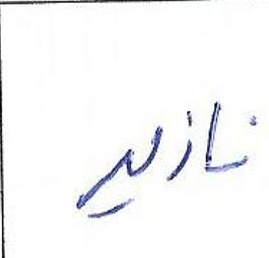 نازلیر